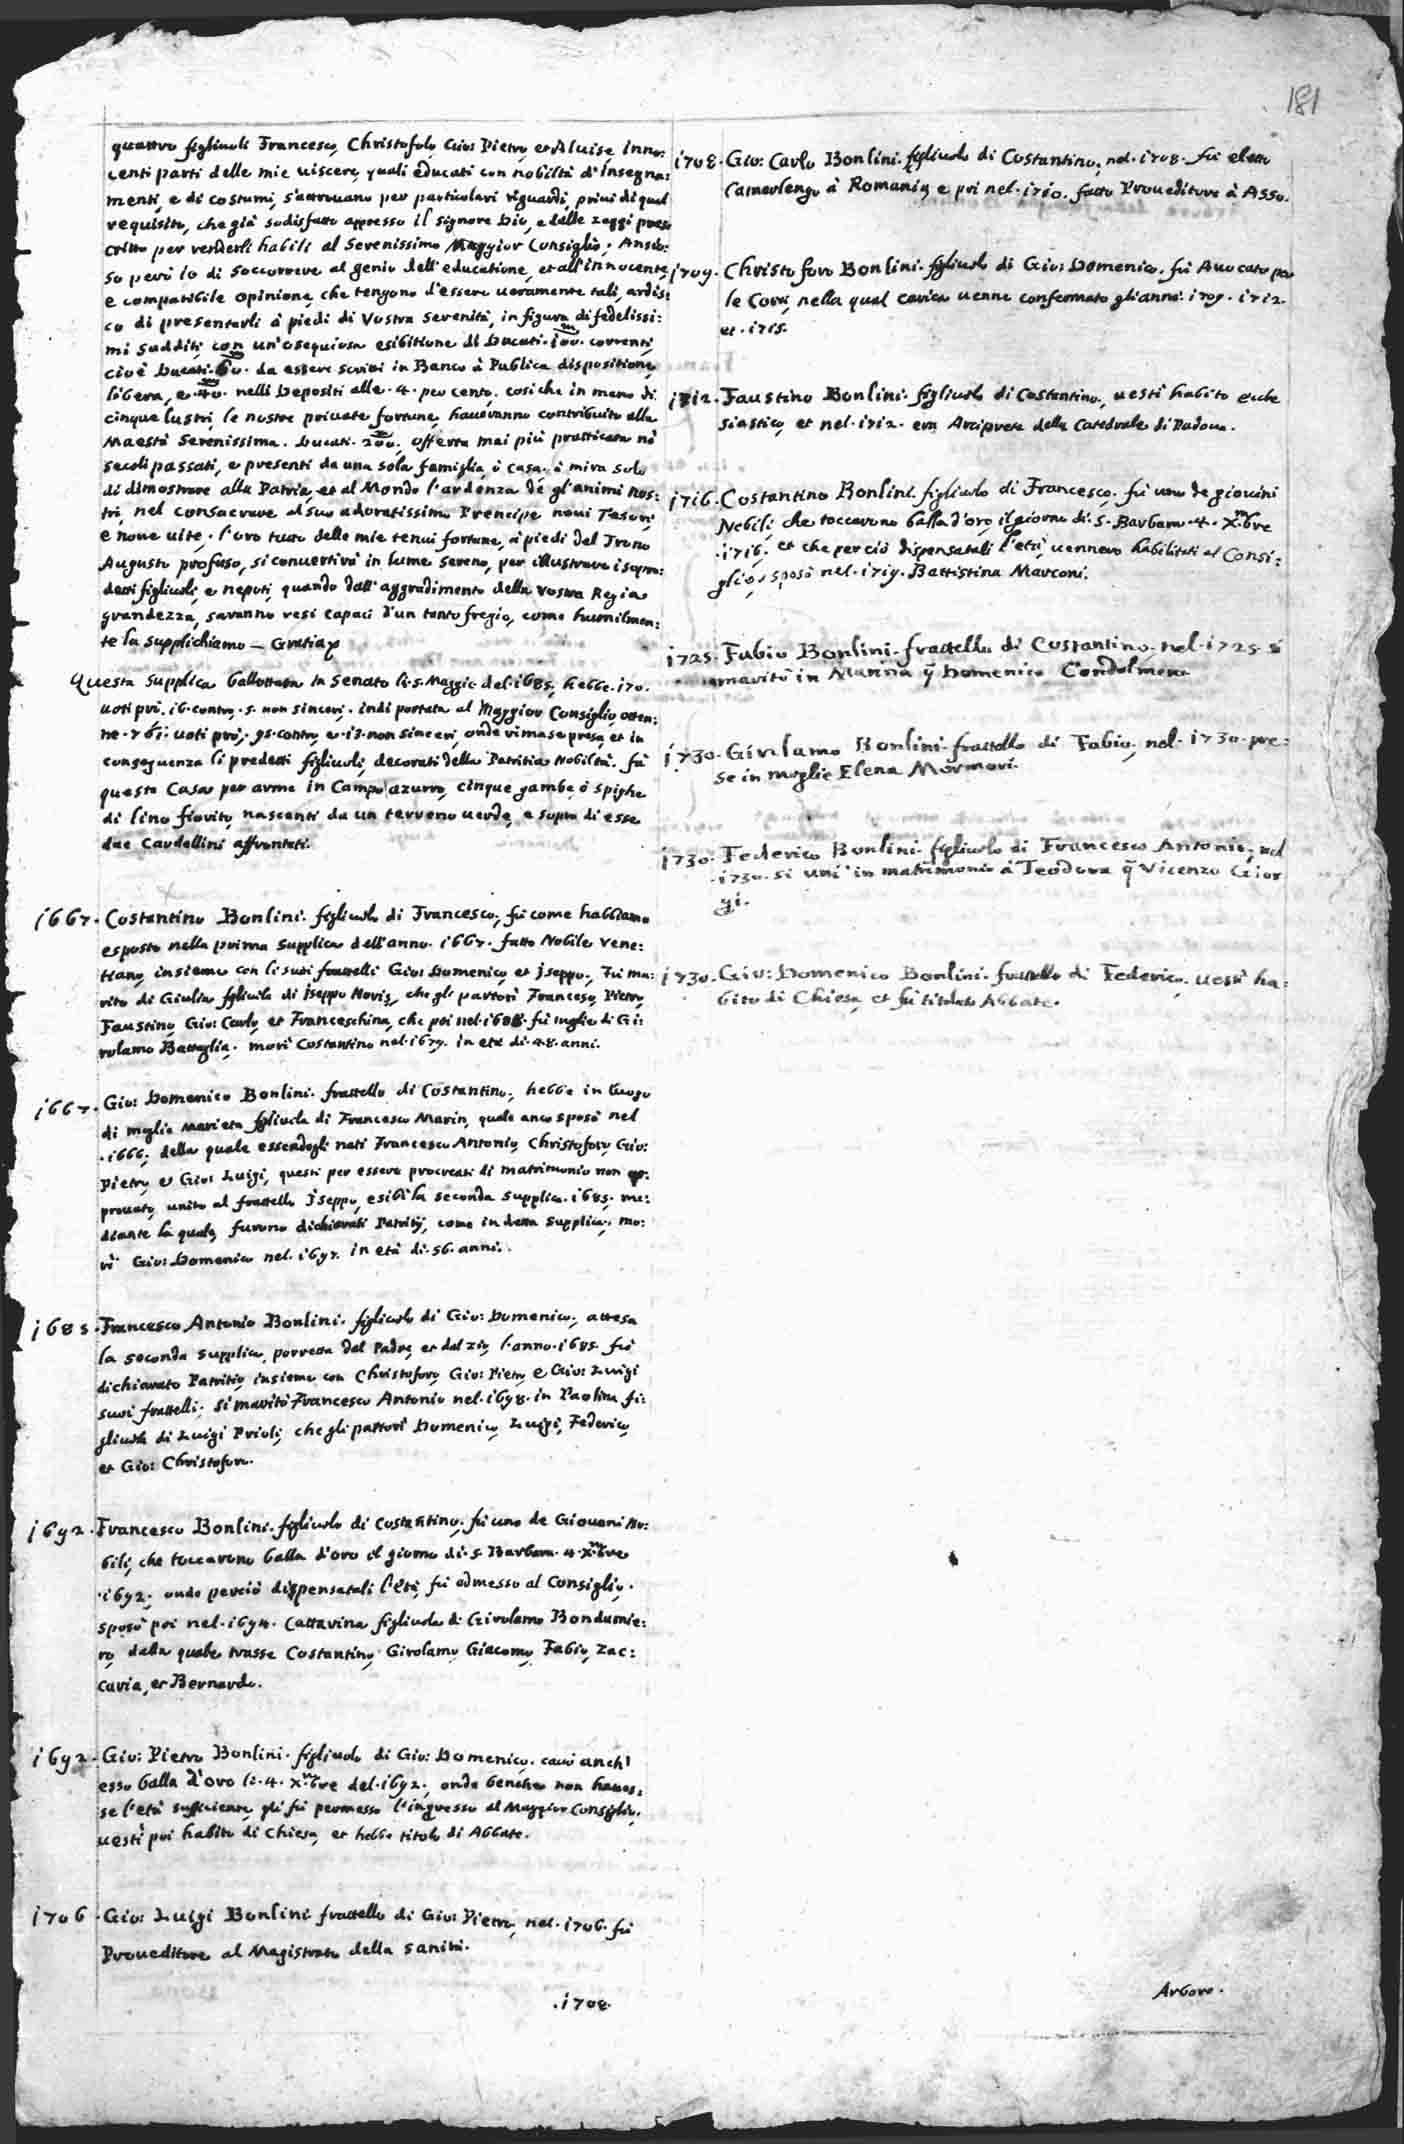 181
quattro figliuoli Francesco, Christofolo, Gio: Pietro, et Aluise, Inno:
centi parti delle mie uiscere, quali educati con nobiltà d'Insegna:
menti, e di costumi, s'attrouano per particolari riguardi, priui di quel
requisito, che già sodisfatto appresso il Signore Dio, e dalle leggi pres
critto per renderli habili al Serenissimo Maggior Consiglio. Ansio:
so però io di soccorrere al genio dell'educatione, et all'innocente,
e compatibile opinione, che tengono d'essere ueramente tali, ardis:
co di presentarli à piedi di Vostra Serenità, in figura di fedelissi:
mi sudditi, con un'osequiosa esibitione di Ducati. 100. correnti,
cioè Ducati. 60. da essere scritti in Banco à Publica dispositione,
libera, e 40. nelli Depositi alle. 4. per cento, cosi che in meno di
cinque lustri, le nostre priuate fortune, haueranno contribuito alla
Maestà Serenissima. Ducati. 200. offerta mai più pratticata nè
secoli passati, e presenti da una sola famiglia, ò casa. à mira solo
di dimostrare alla Patria, et al Mondo l'ardenza de gl'animi nos:
tri, nel consacrare al suo adoratissimo Prencipe noui Tesori,
e noue uite. l'oro tutto delle mie tenui fortune, à piedi del Trono
Augusto profuso, si conuertirà in lume sereno, per illustrare i sopra:
detti figliuoli, e neputi, quando dall'aggradimento della Vostra Regia
grandezza, saranno resi capaci d'un tanto fregio, come humilmen:
te la supplichiamo — Gratia
Questa Supplica ballottata in Senato li. 5. Maggio del. 1685, hebbe. 170.
uoti prò. 16. contro. 5. non sinceri. indi portata al Maggior Consiglio, otten:
ne. 761. uoti prò, 95. contro, e. 13. non sinceri, onde rimase presa, et in
conseguenza li predetti figliuoli, decorati della Patritia Nobiltà. fà
questa Casa per arma in Campo azurro, cinque gambe, ò spighe
di lino fiorito, nascenti da un terreno uerde, e sopra di esse
due Cardellini affrontati.
1667. Costantino Bonlini. figliuolo di Francesco, fù come habbiamo
esposto nella prima supplica dell'anno. 1667. fatto Nobile Vene:
tiano, insieme con li suoi fratelli Gio: Domenico, et Iseppo. Fù ma:
rito di Giulia figliuola di Iseppo Noris, che gli partorì Francesco, Pietro,
Faustino, Gio: Carlo, et Franceschina, che poi nel. 1688. fù moglie di Gi:
rolamo Battaglia. morì Costantino nel. 1679. in età di. 48. anni.
1667. Gio: Domenico Bonlini. frattello di Costantino, hebbe in luogo
di moglie Marieta figliuola di Francesco Marin, quale anco sposò nel
.1666, della quale essendogli nati Francesco Antonio, Christoforo, Gio:
Pietro, e Gio: Luigi, questi per essere procreati di matrimonio non ap:
prouato, unito al frattello Iseppo, esibì la seconda supplica. 1685. me:
diante la quale, furono dichiarati Patritij, come in detta supplica. mo:
rì Gio: Domenico nel. 1697. in età di. 56. anni.
1685. Francesco Antonio Bonlini. figliuolo di Gio: Domenico, attesa
la seconda supplica, porretta dal Padre, et dal zio, l'anno. 1685. fù
dichiarato Patritio, insieme con Christoforo, Gio: Pietro, e Gio: Luigi
suoi frattelli. si maritò Francesco Antonio nel. 1698. in Paolina fi:
gliuola di Luigi Prioli, che gli partorì Domenico, Luigi, Federico,
et Gio: Christoforo.
1692. Francesco Bonlini. figliuolo di Costantino. fù uno de Giouani No:
bili, che toccarono balla d'oro il giorno di. S. Barbara. 4. Xmbre
.1692, onde perciò dispensatali l'età, fù admesso al Consiglio.
sposò poi nel. 1694. Cattarina figliuola di Girolamo Bondumie:
ro, dalla quale trasse Costantino, Girolamo, Giacomo, Fabio, Zac:
caria, et Bernardo.
1692. Gio: Pietro Bonlini. figliuolo di Gio: Domenico, cauò anch'
esso balla d'oro li. 4. Xmbre del. 1692, onde benche non haues:
se l'età sufficiente, gli fù permesso l'ingresso al Maggior Consiglio.
uestì poi habito di Chiesa, et hebbe titolo di Abbate.
1706. Gio: Luigi Bonlini frattello di Gio: Pietro, nel. 1706. fù
Proueditore al Magistrato della Sanità.
.1708.
1708. Gio: Carlo Bonlini. figliuolo di Costantino, nel. 1708. fù eletto
Camerlengo à Romania, e poi nel. 1710. fatto Proueditore à Asso.
1709. Christoforo Bonlini. figliuolo di Gio: Domenico. fù Auocato per
le Corti, nella qual carica uenne confermato gli anni. 1709. 1712.
et. 1715.
1712. Faustino Bonlini. figliuolo di Costantino, uestì habito eccle
siastico, et nel. 1712. era Arciprete della Catedrale di Padoua.
1716. Costantino Bonlini. figliuolo di Francesco, fù uno de giouini
Nobili, che toccarono balla d'oro, il giorno di. S. Barbara. 4. Xmbre
.1716. et che perciò dispensatali l'età, uennero habilitati al Consi:
glio, sposò nel. 1719. Battistina Marconi.
1725. Fabio Bonlini. frattello di Costantino. nel. 1725. si
maritò in Marina q Domenico Condolmer.
1730. Girolamo Bonlini. frattello di Fabio, nel. 1730. pre:
se in moglie Elena Mormori.
1730. Federico Bonlini. figliuolo di Francesco Antonio, nel
.1730. si unì in matrimonio à Teodora q Vicenzo Gior
gi.
1730. Gio: Domenico Bonlini. frattello di Federico. uestì ha:
bito di Chiesa, et fù titolato Abbate.
Arbore.